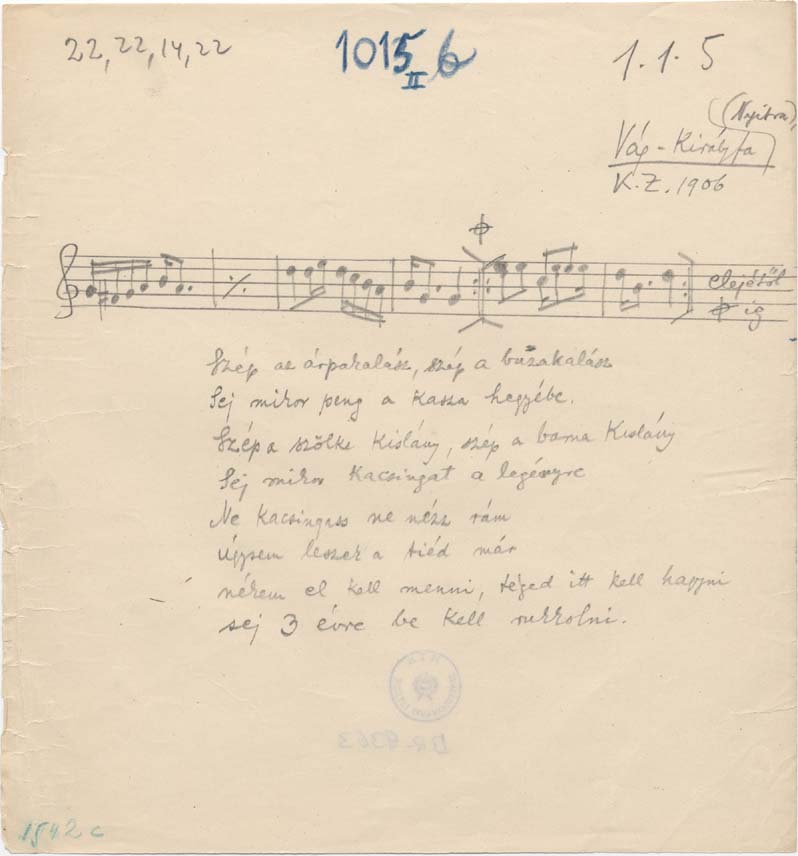 22, 22, 14, 22
1015 6
II
1. 1. 5
(Nyitra)
Vág-Királyfa
K. Z. 1906
elejétől
ig
Szép az árpakalász, szép a búzakalász
Sej mikor peng a kasza hegyébe.
Szép a szőke kislány, szép a barna kislány
Sej mikor kacsingat a legényre
Ne kacsingass ne nézz rám
Úgysem leszek a tiéd már
nékem el kell menni, téged itt kell hagyni
sej 3 évre be kell rukkolni.
BR 9363
1542 c